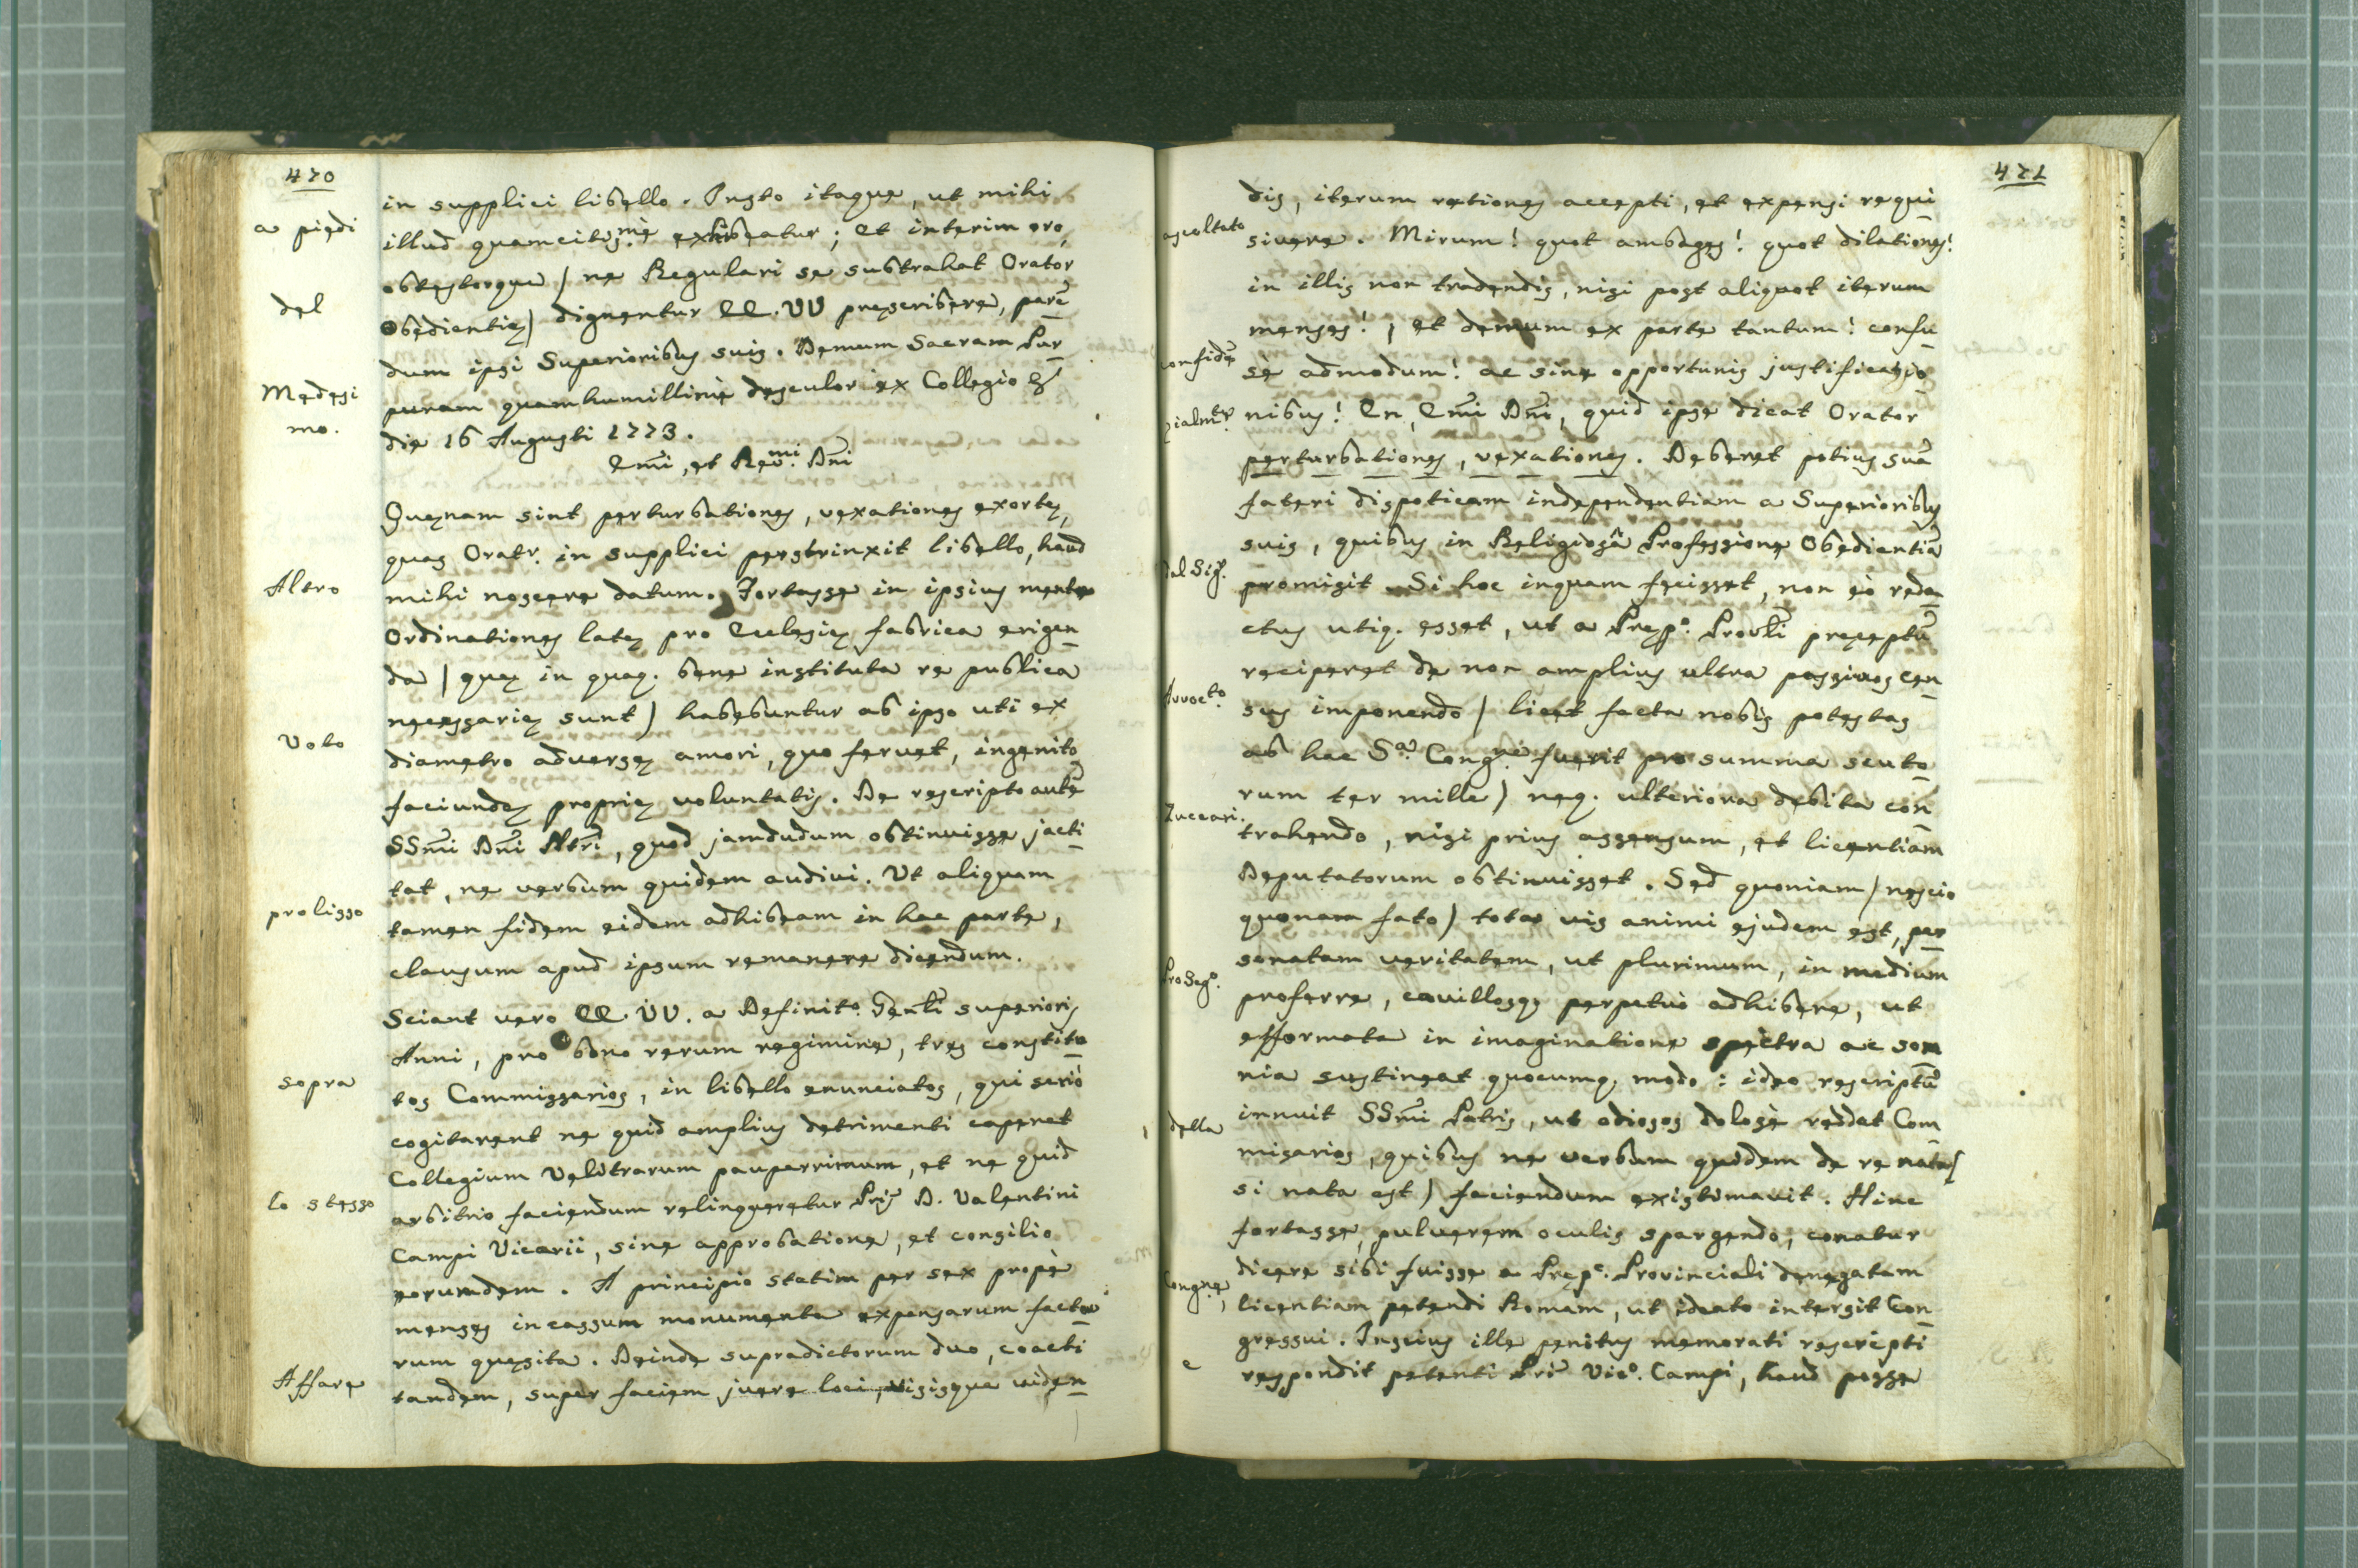 470
a piedi
del
Medesi
mo.
Altro
Voto
prolisso
sopra
lo stesso
Affare
in supplici libello. Insto itaque, ut mihi
illud quamcitis.mè exhibeatur; et interim oro,
obtestorque / ne Regulari se subtrahat Orator
Obedientię) dignentur EE. VV pręscribere, parē
dum ipsi Superioribus suis. Demum Sacram Pur
puram quam humillimè desculor ex Collegio &
die 16 Augusti 1773.
Emi, et Rev.mi Dni
Quęnam sint perturbationes, vexationes exortę,
quas Oratr. in supplici perstrinxit libello, haud
mihi noscere datum. Fortasse in ipsius mente
Ordinationes latę pro Ecclesię fabrica erigen
da / quę in quaq. bene instituta re publica
necessarię sunt) habebuntur ab ipso uti ex
diametro adversę amori, quo fervet, ingenito
faciundę proprię voluntatis. De rescripto autē
SSmi Dni Ntri, quod jamdudum obtinuisse jacti
tat, ne verbum quidem audivi. Ut aliquam
tamen fidem eidem adhibeam in hac parte,
clausum apud ipsum remanere dicendum.
Sciant vero EE. VV. a Definito. Genli superioris
Anni, pro bono rerum regimine, tres constitu
tos Commissarios, in libello enunciatos, qui seriò
cogitarent ne quid amplius detrimenti caperet
Collegium Velitrarum pauperrimum, et ne quid
arbitrio faciendum relinqueretur Pris D. Valentini
Campi Vicarii, sine approbatione, et consilio
eorumdem. A principio statim per sex propè
menses incassum monumenta expensarum facta
rum quęsita. Deinde supradictorum duo, coacti
tandem, super faciem ivere loci, visisque viden
471
ascoltato
confidē
zialmte
dal Sigr.
Avvocto.
Zuccari.
ProSegrio.
della
Congne,
e
dis, iterum rationes accepti, et expensi requi
sivere. Mirum! quot ambages! quot dilationes!
in illis non tradendis, nisi post aliquot iterum
menses!, et demum ex parte tantum! confu
sè admodum! ac sine opportunis justificatio
nibus! En, Emi Dni, quid ipse dicat Orator
perturbationes, vexationes. Deberet potius suā
fateri dispoticam independentiam a Superioribus
suis, quibus in Religiosâ Professione Obedientiā
promisit. Si hoc inquam fecisset, non eò reda
ctus utiq. esset, ut a Pręp.o Provli pręceptū
reciperet de non amplius ultra passivos cen
sus imponendo / licet facta nobis potestas
ab hac S.a Cong.ne fuerit pro summa scuto
rum ter mille) neq. ulteriora debita con
trahendo, nisi prius assensum, et licentiam
Deputatorum obtinuisset. Sed quoniam / nescio
quonam fato) tota vis animi ejudem est, per
sonatam veritatem, ut plurimum, in medium
proferre, cavillosq; perpetuò adhibere, ut
efformata in imaginatione spectra ac som
nia sustineat quocumq. modo: ideo rescriptū
innuit SSmi Patris, ut odiosos dolosè reddat Com
misarios, quibus ne verbum quidem de re nata /
si nata est) faciendum existimavit. Hinc
fortasse, pulverem oculis spargendo, conatur
dicere sibi fuisse a Pręp.o Provinciali denegatam
licentiam petendi Romam, ut ideato intersit Con
gressui. Inscius ille penitus memorati rescripti
respondit petenti Pri Vic.o Campi, haud posse